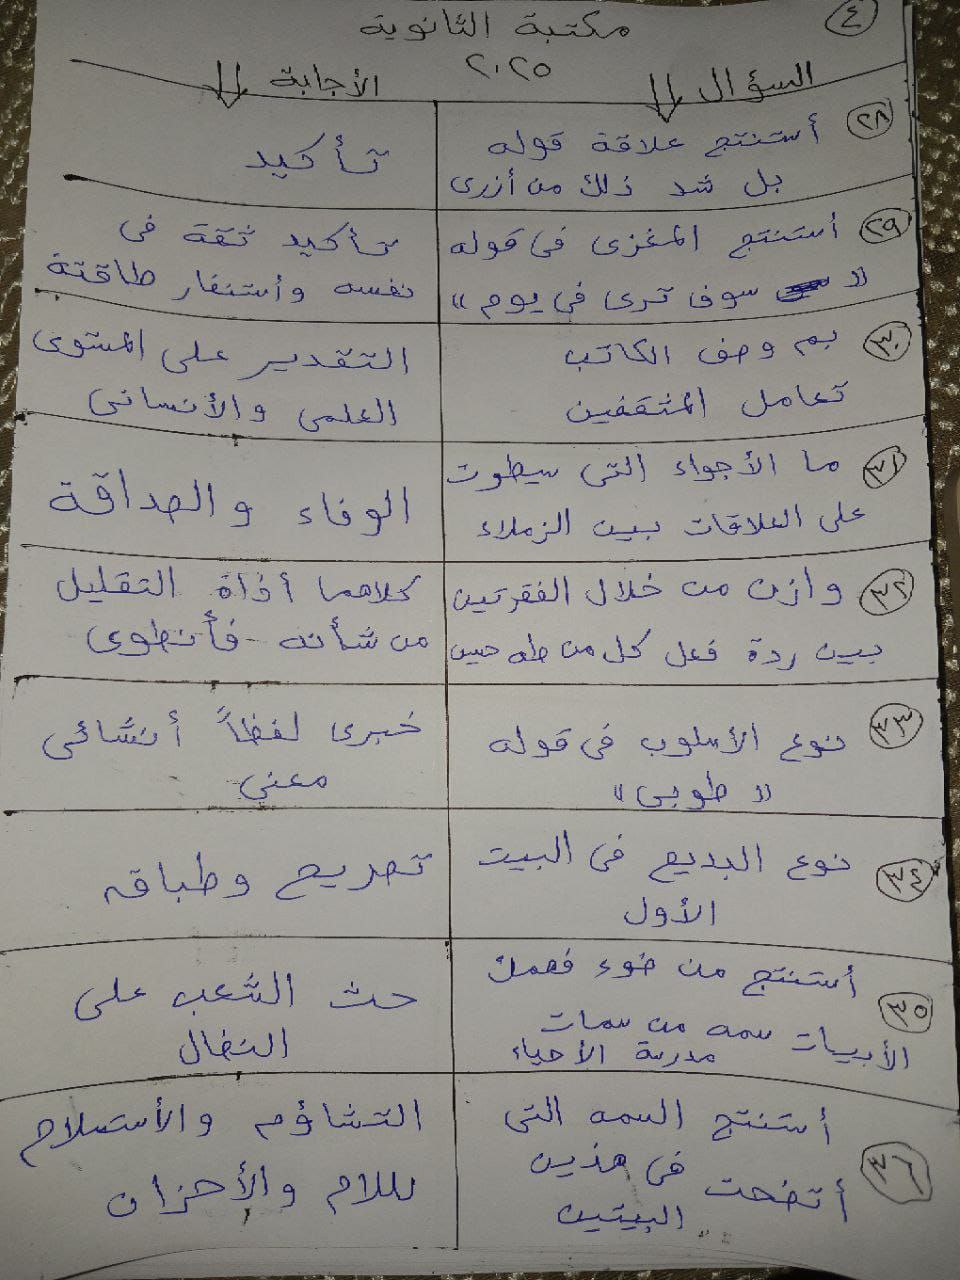 ٤
مكتبة الثانوية
٢٠٢٥
السؤال
الأجابة
٢٨ أستنتج علاقة قوله
بل شد ذلك من أزرى
تأكيد
٢٩ أستنتج المغزى فى قوله
« سوف ترى فى يوم »
تأكيد ثقة فى
نفسه وأستنفار طاقتة
٣٠ بم وصف الكاتب
تعامل المثقفين
التقدير على المستوى
العلمى والأنسانى
٣١ ما الأجواء التى سيطوت
على العلاقات بين الزملاء
الوفاء والصداقة
٣٢ وازن من خلال الفقرتين
بين ردة فعل كل من طه حسين
كلاهما أذاة التقليل
من شأنه فأنطوى
٣٣ نوع الأسلوب فى قوله
« طوبى »
خبرى لفظاً أنشائى
معنى
٣٤ نوع البديع فى البيت
الأول
تصريع وطباق
٣٥ أستنتج من ضوء فهمك
الأبيات سمه من سمات
مدرسة الأحياء
حث الشعب على
النضال
٣٦ أستنتج السمه التى
أتضحت فى هذين
البيتين
التشاؤم والأستسلام
للالام والأحزان